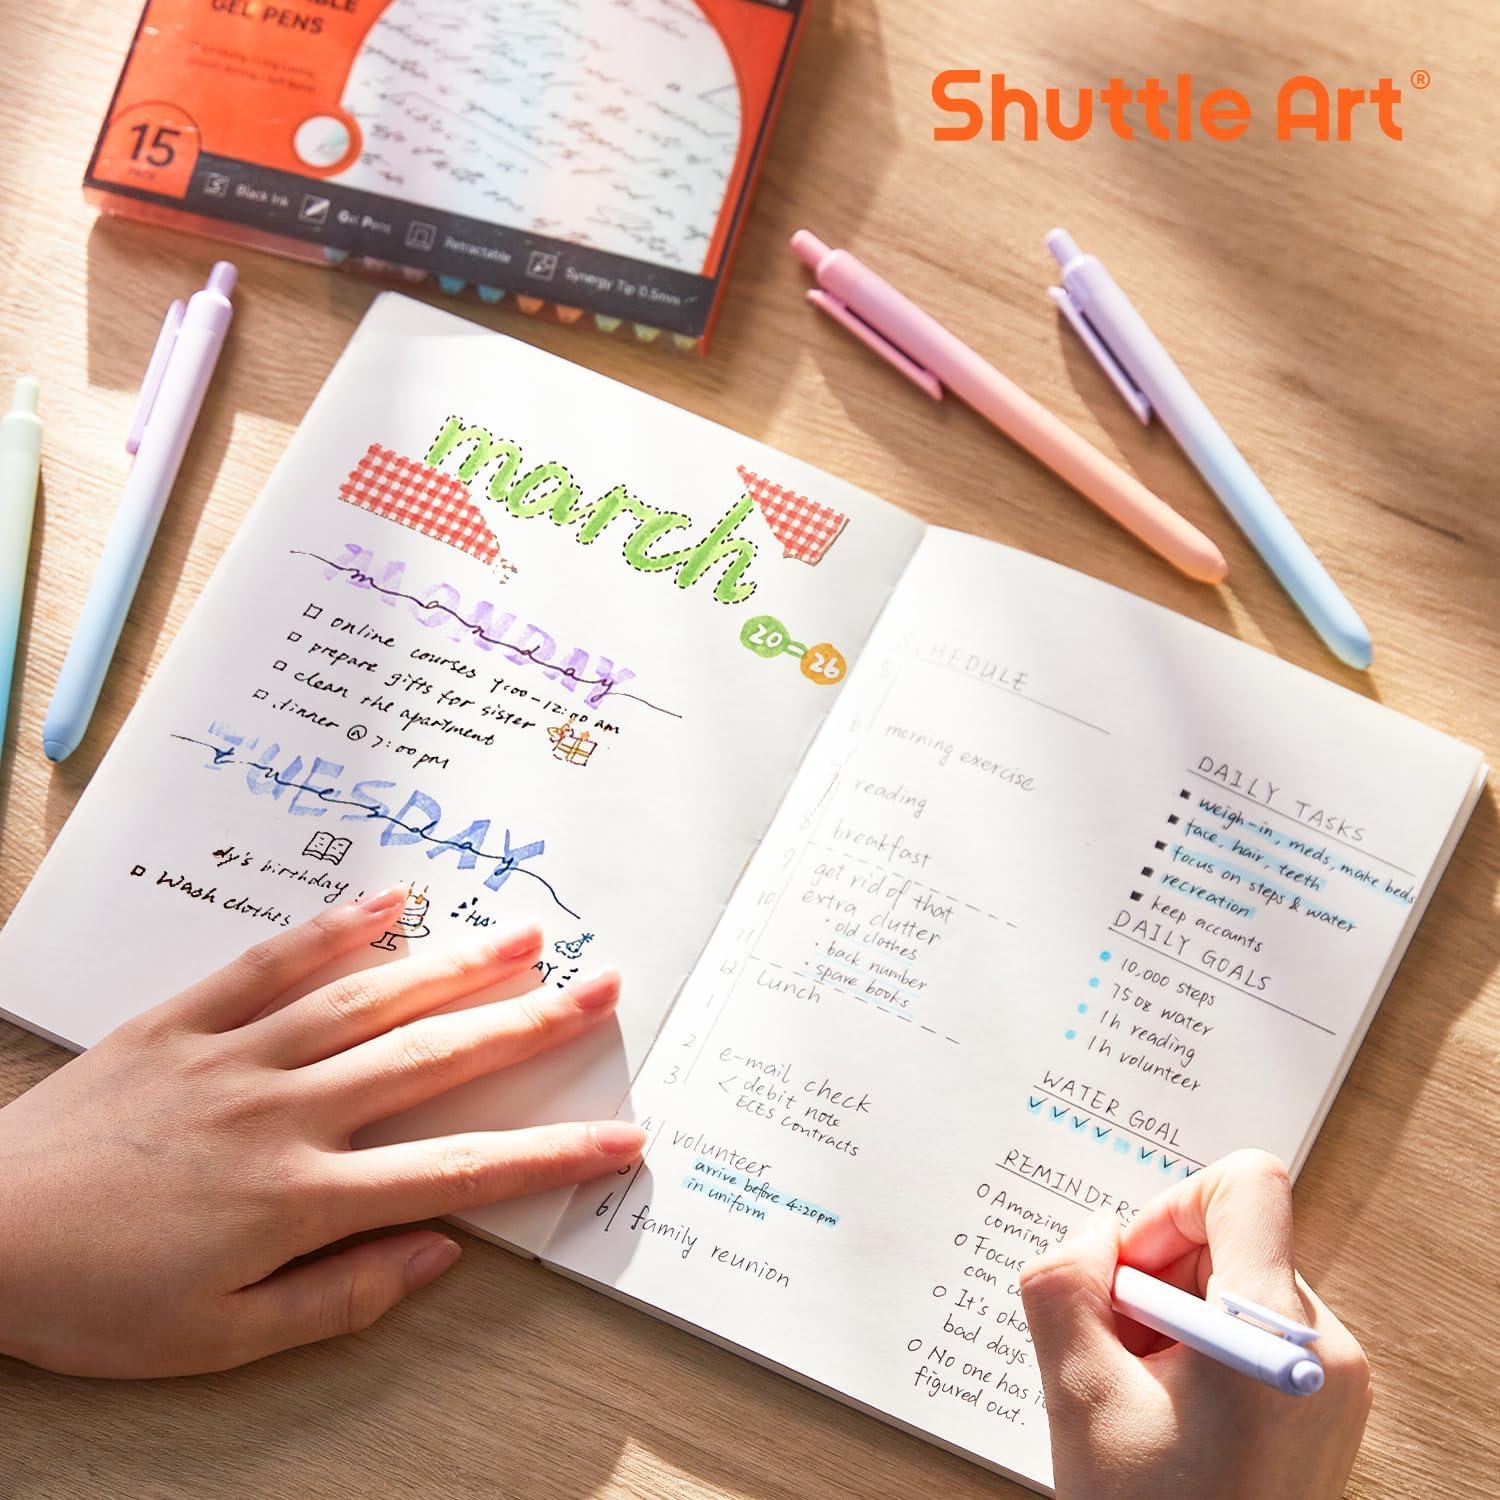 GEL PENS
15
PACK
Black Ink
Gel Pens
Retractable
Synergy Tip 0.5mm
Shuttle Art®
march
20=26
MONDAY
monday
online courses 9:00-12:00 am
prepare gifts for sister
clean the apartment
dinner @ 7:00 pm
TUESDAY
tuesday
dy's birthday!
Wash clothes
SCHEDULE
5
6
morning exercise
7
reading
8
breakfast
9
get rid of that
10
extra clutter
• old clothes
11
• back number
• spare books
12
Lunch
1
2
e-mail check
3
< debit note
ECES contracts
4
volunteer
arrive before 4:20pm
5
in uniform
6
family reunion
DAILY TASKS
weigh-in, meds, make beds
face, hair, teeth
focus on steps & water
recreation
keep accounts
DAILY GOALS
10,000 steps
75 oz water
1h reading
1h volunteer
WATER GOAL
REMINDERS
Amazing
coming
Focus
can
It's
bad days.
No one has
figured out.